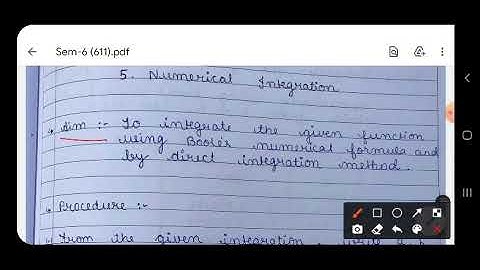 Sem-6 (611).pdf
5. Numerical Integration
Aim :- To integrate the given function
using Boole's numerical formula and
by direct integration method.
Procedure :-
From the given integration,